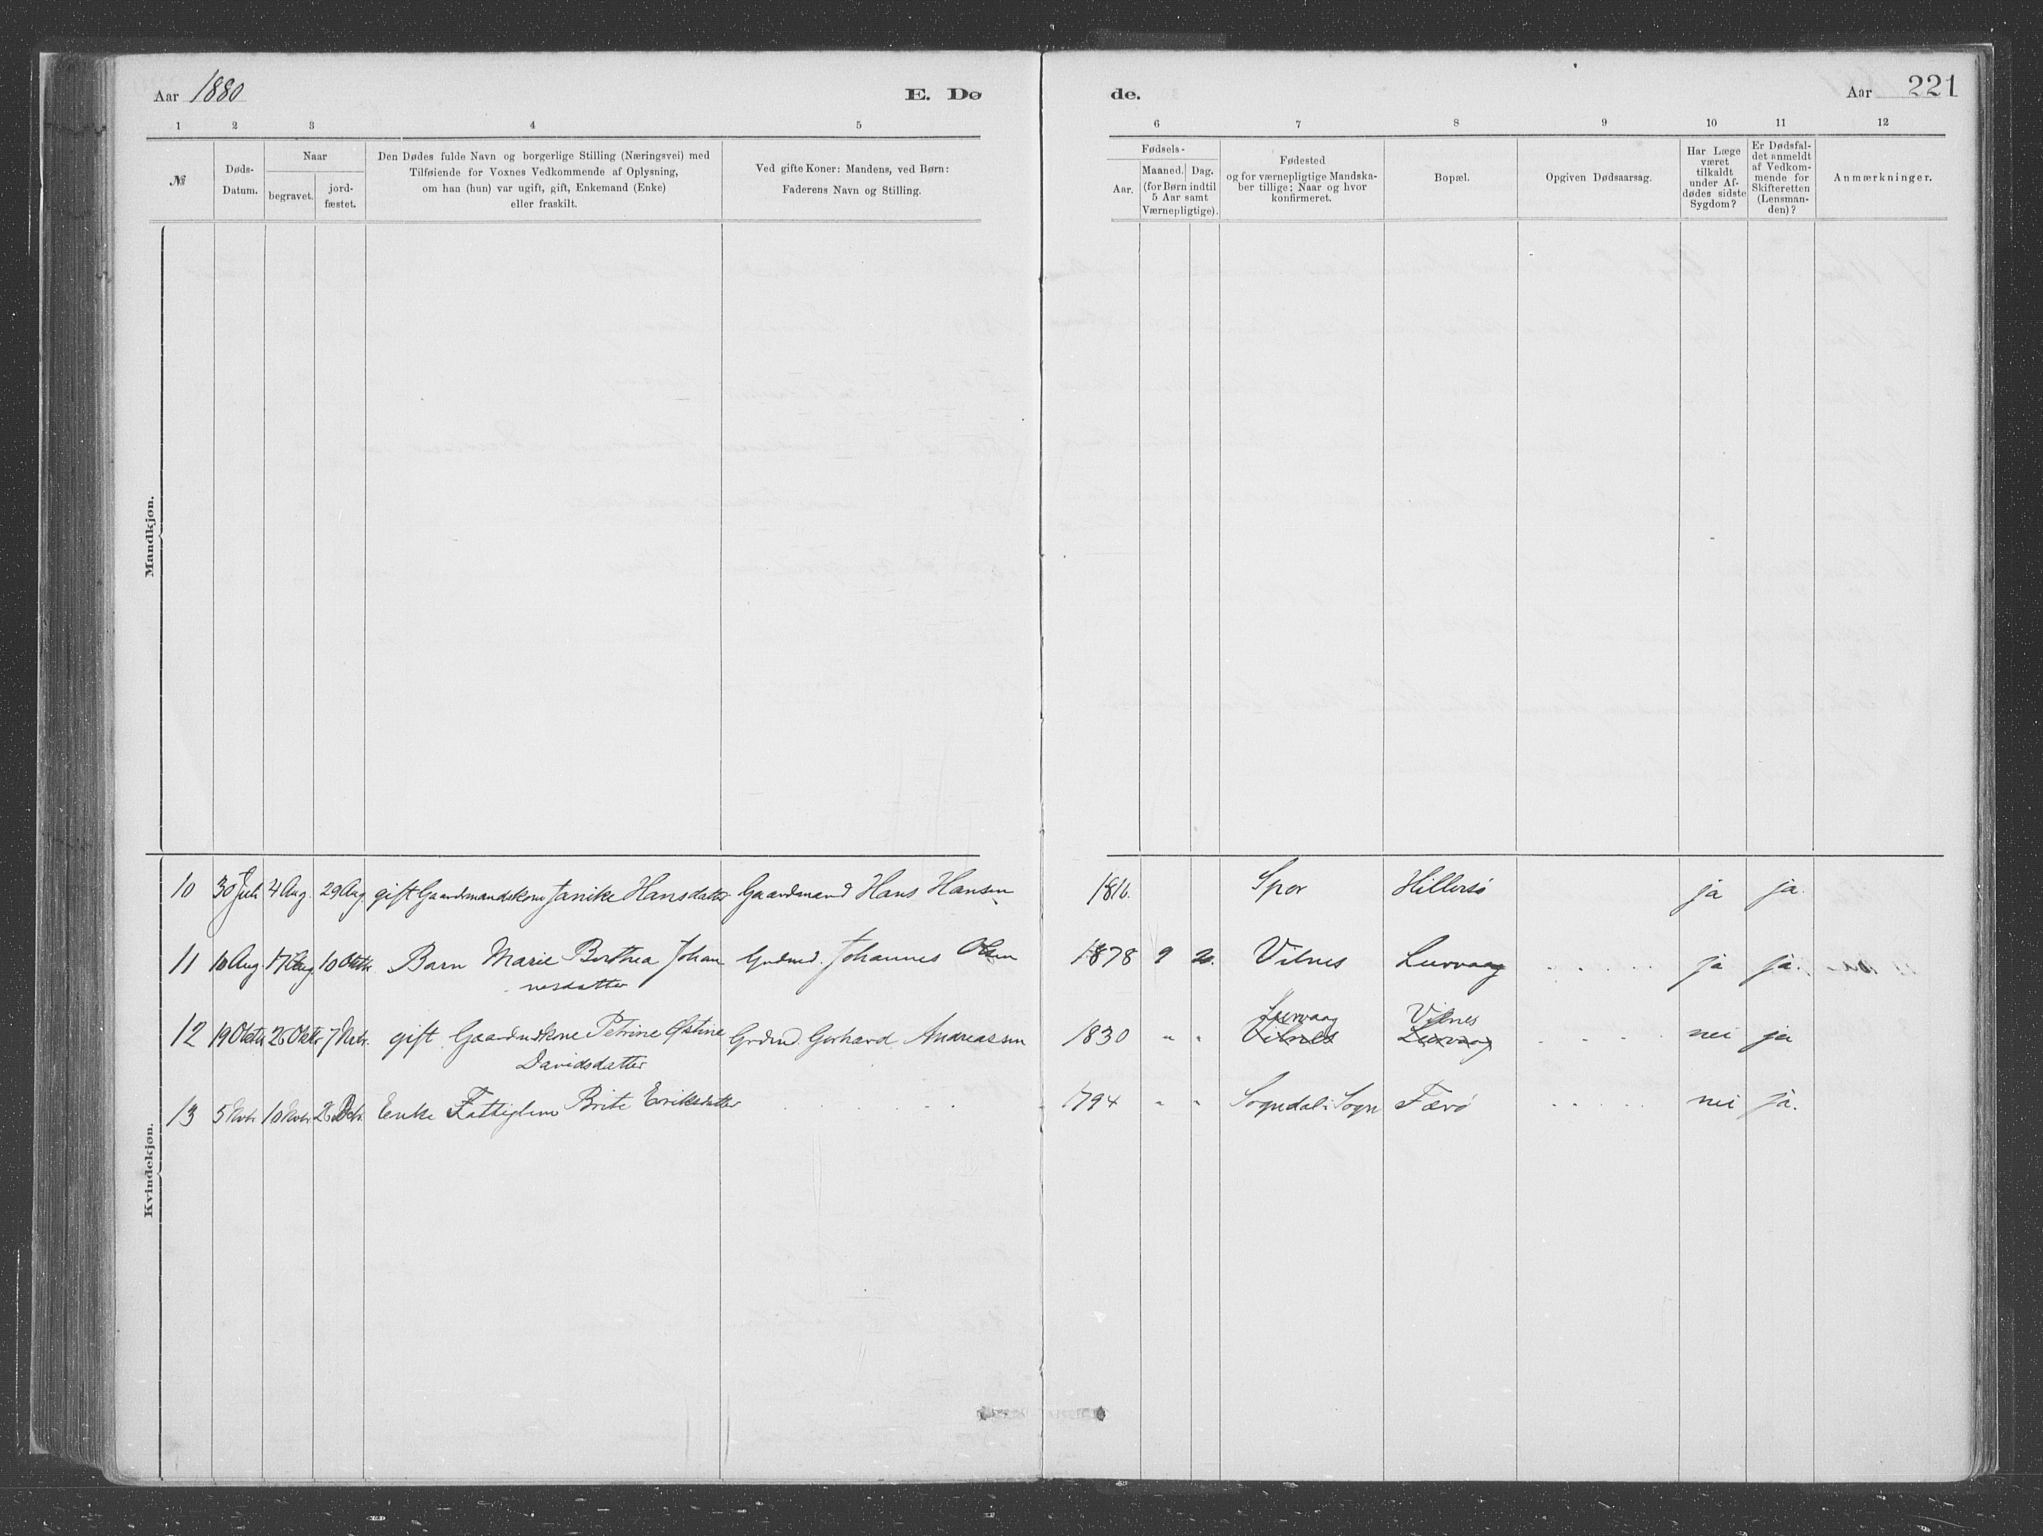 Aar 1880 E. Dø de. Aar 221
1 2 3 4 5 6 7 8 9 10 11 12
№
Døds-
Datum.
Naar
begravet.
jord-
fæstet.
Den Dødes fulde Navn og borgerlige Stilling (Næringsvei) med
Tilføiende for Voxnes Vedkommende af Oplysning,
om han (hun) var ugift, gift, Enkemand (Enke)
eller fraskilt.
Ved gifte Koner: Mandens, ved Børn:
Faderens Navn og Stilling.
Fødsels-
Aar.
Maaned. Dag.
(for Børn indtil
5 Aar samt
Værnepligtige).
Fødested
og for værnepligtige Mandska-
ber tillige: Naar og hvor
konfirmeret.
Bopæl.
Opgiven Dødsaarsag.
Har Læge
været
tilkaldt
under Af-
dødes sidste
Sygdom?
Er Dødsfal-
det anmeldt
af Vedkom-
mende for
Skifteretten
(Lensman-
den)?
Anmærkninger.
Mandkjøn.
Kvindekjøn.
10 30 Juli 4 Aug. 29 Aug. gift Gaardmandskone Janike Hansdatter Gaardmand Hans Hansen 1816. Spor Hillersø ja ja.
11 10 Aug. 17 Aug. 10 Oktbr. Barn Marie Berthea Johan Grdmd. Johannes Olsen 1878 9 20. Vilnes Lurvaag ja ja.
nesdatter
Lurvaag Vilnes
12 19 Oktbr. 26 Oktbr. 7 Nvbr. gift Gaardmdskone Petrine Østine Grdmd. Gerhard Andreassen 1830 " " Vilnes Lurvaag nei ja
Davidsdatter
13 5 Nvbr. 10 Nvbr. 26 Dcbr. Enke Fattiglem Brite Eriksdatter 1794 " " Sogndal i Sogn Færø nei ja.